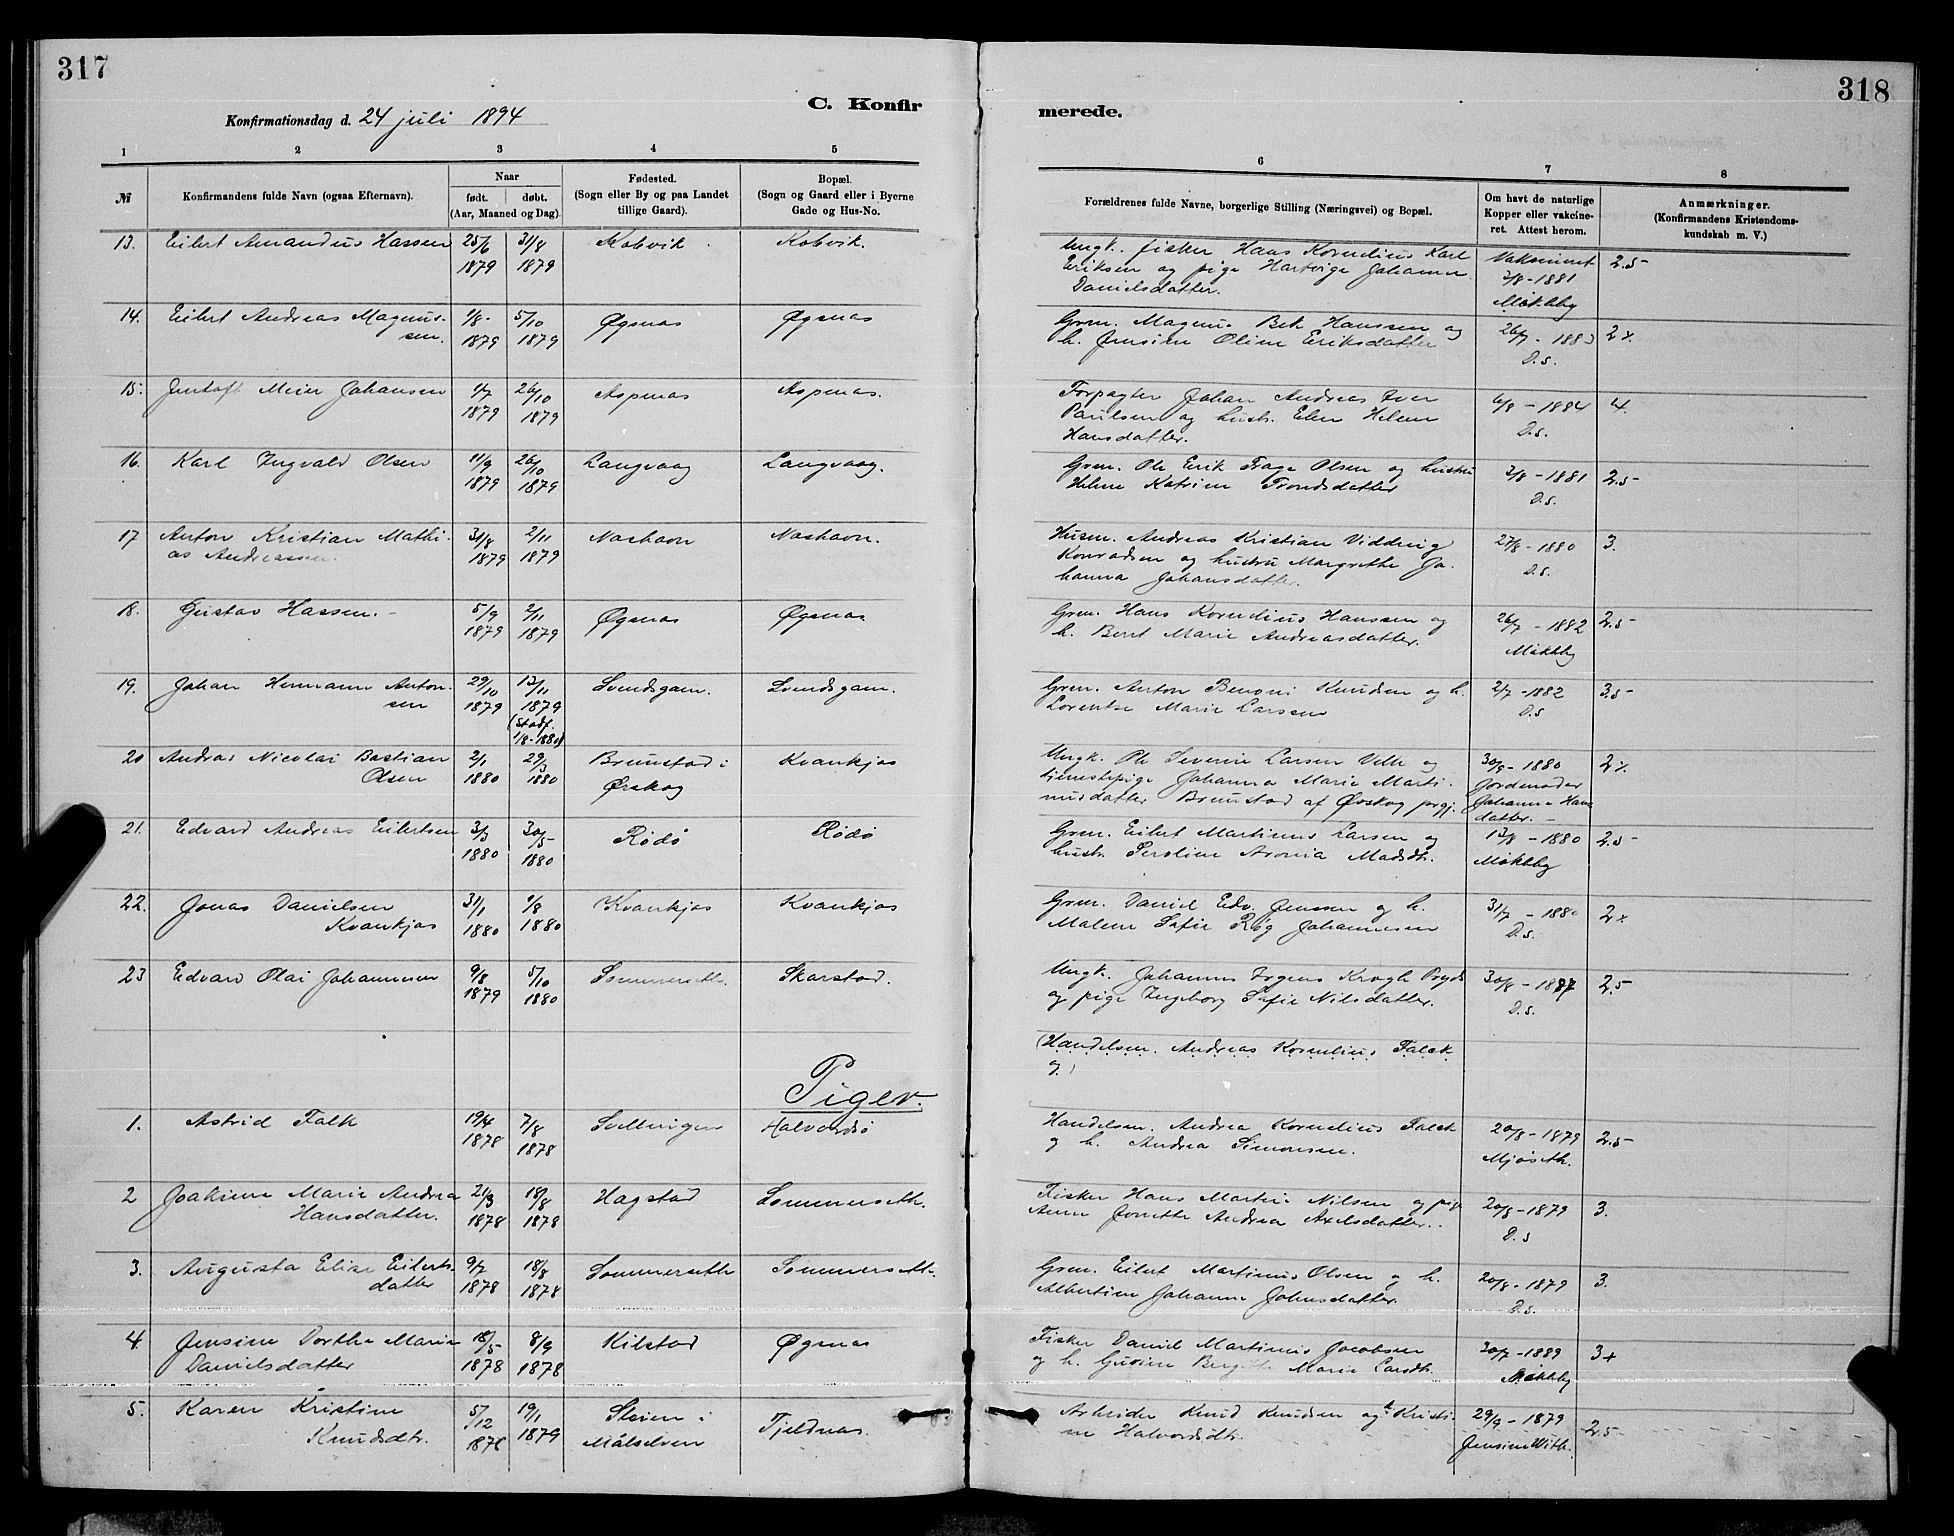 317
Konfirmationsdag d. 24 juli 1894
C. Konfir
1 2 3 4 5
№
Konfirmandens fulde Navn (ogsaa Efternavn).
Naar
født. døbt.
(Aar, Maaned og Dag).
Fødested.
(Sogn eller By og paa Landet
tillige Gaard).
Bopæl.
(Sogn og Gaard eller i Byerne
Gade og Hus-No.
13. Eilert Amandus Hassen 25/6 31/8 Kobvik Kobvik.
1879 1879
14. Eilert Andreas Magnus- 1/8 5/10 Øgsnas Øgsnas
sen. 1879 1879
15. Jentoft Meier Johansen 1/7 26/10 Aspenas Aspenas.
1879 1879
16. Karl Ingvald Olsen 11/9 26/10 Langvaag Langvaag.
1879 1879
17 Anton Kristian Mathi- 31/8 2/11 Nashavn Nashavn.
as Andreassen. 1879 1879
18. Gustav Hassen. 5/9 2/11 Øgsnas Øgsnas
1879 1879
19. Johan Hermann Anton- 29/10 13/11 Svendsgam. Svendsgam.
sen 1879 1879
(Stadf.
1/8-1880)
20 Andras Nicolai Bastian 2/1 29/3 Brunstad i Kvankjos
Olsen 1880 1880 Ørskog
21. Edvard Andreas Eilertsen 3/3 30/5 Rødø Rødø
1880 1880
22. Jonas Danielsen 31/1 1/8 Kvankjos Kvankjos
Kvankjos 1880 1880
23 Edvard Olai Johannesen 9/8 5/10 Sommerseth. Skarstad.
1879 1880
Piger.
1. Astrid Falk 19/4 7/8 Svellingen Halvordsø
1878 1878
2 Joakime Marie Andrea 21/3 18/8 Hagstad Sommerseth.
Hansdatter. 1878 1878
3. Augusta Elise Eilerts- 9/7 18/8 Sommerseth Sommerseth.
datter 1878 1878
4. Jensine Dorthea Marie 18/5 8/9 Kilstad Øgsnas
Danielsdatter 1878 1878
5. Karen Kristine 5/12 19/1 i Tjeldnas.
Knudsdtr. 1878 1879 Målselven
318
merede.
6 7 8
Forældrenes fulde Navne, borgerlige Stilling (Næringsvei) og Bopæl.
Om havt de naturlige
Kopper eller vakcine-
ret. Attest herom.
Anmærkninger.
(Konfirmandens Kristendoms-
kundskab m. V.)
Ungk. fisker Hans Kornelius Karl Vaksineret 2.5
Eriksen og pige Hartvige Johanna 2/8-1881
Danielsdatter. Møkkby
Grm. Magnus Bek Hanssen og 26/7 - 1883 2x
h. Jensine Oline Eriksdatter D.s.
Forpagter Johan Andreas Iver 6/8 - 1884 4.
Paulsen og hustr. Elen Helene D.s.
Hansdatter.
Grm. Ole Erik Fage Olsen og hustru 2/8 - 1881 2.5
Helene Katrine Trondsdatter D.s.
Husm. Andreas Kristian Vidding 27/8 - 1880 3.
Konradsen og hustru Margrethe Jo- D.s.
hanna Johansdatter.
Grm. Hans Kornelius Hanssen og 26/7 - 1882 2.5
h. Berit Marie Andreasdatter. Møkkby
Grm. Anton Benoni Knudsen og h. 2/7 -1882 3.5
Lorentse Marie Larssen D.s
Ungk. Ole Severin Larsen Velle og 30/9 - 1880 2%
tjenestepige Johanna Marie Marti- Jordemoder
nusdatter Brunstad af Ørskog prgj. Johanne Hans
datter.
Grm. Eilert Martinus Larsen og 13/8 - 1880 2.5
hustr. Seroline Aronia Madsdtr. Møkkby
Grm. Daniel Edv. Jenssen og h. 31/7 - 1880 2x
Malene Sofie Røg Johannesen D.s.
Ungk. Johannes Irgens Krogh Pryds 30/8 - 1887 2.5
og pige Ingeborg Sofie Nilsdatter. D.s.
(Handelsm. Andreas Kornelius Falck
og)
Handelsm. Andrea Kornelius Falck 20/8 - 1879 2.5
og h. Andrea Simonsen. Mjøseth.
Fisker Hans Martin Nilsen og pig 20/8 - 1879 3.
Anne Jonette Andrea Axelsdatter. D.s
Grm. Eilert Martinus Olsen og h. 20/8 - 1879 3.
Albertine Johanne Johnsdatter. D.s.
Fisker Daniel Martinus Jacobsen 30/7 -1889 3+
og h. Gusine Bergitte Marie Larsdtr. Møkkby
Arbeider Knud Knudsen og h Kristi- 29/9 - 1879 2.5
ne Halvordsdtr. Jensine With.